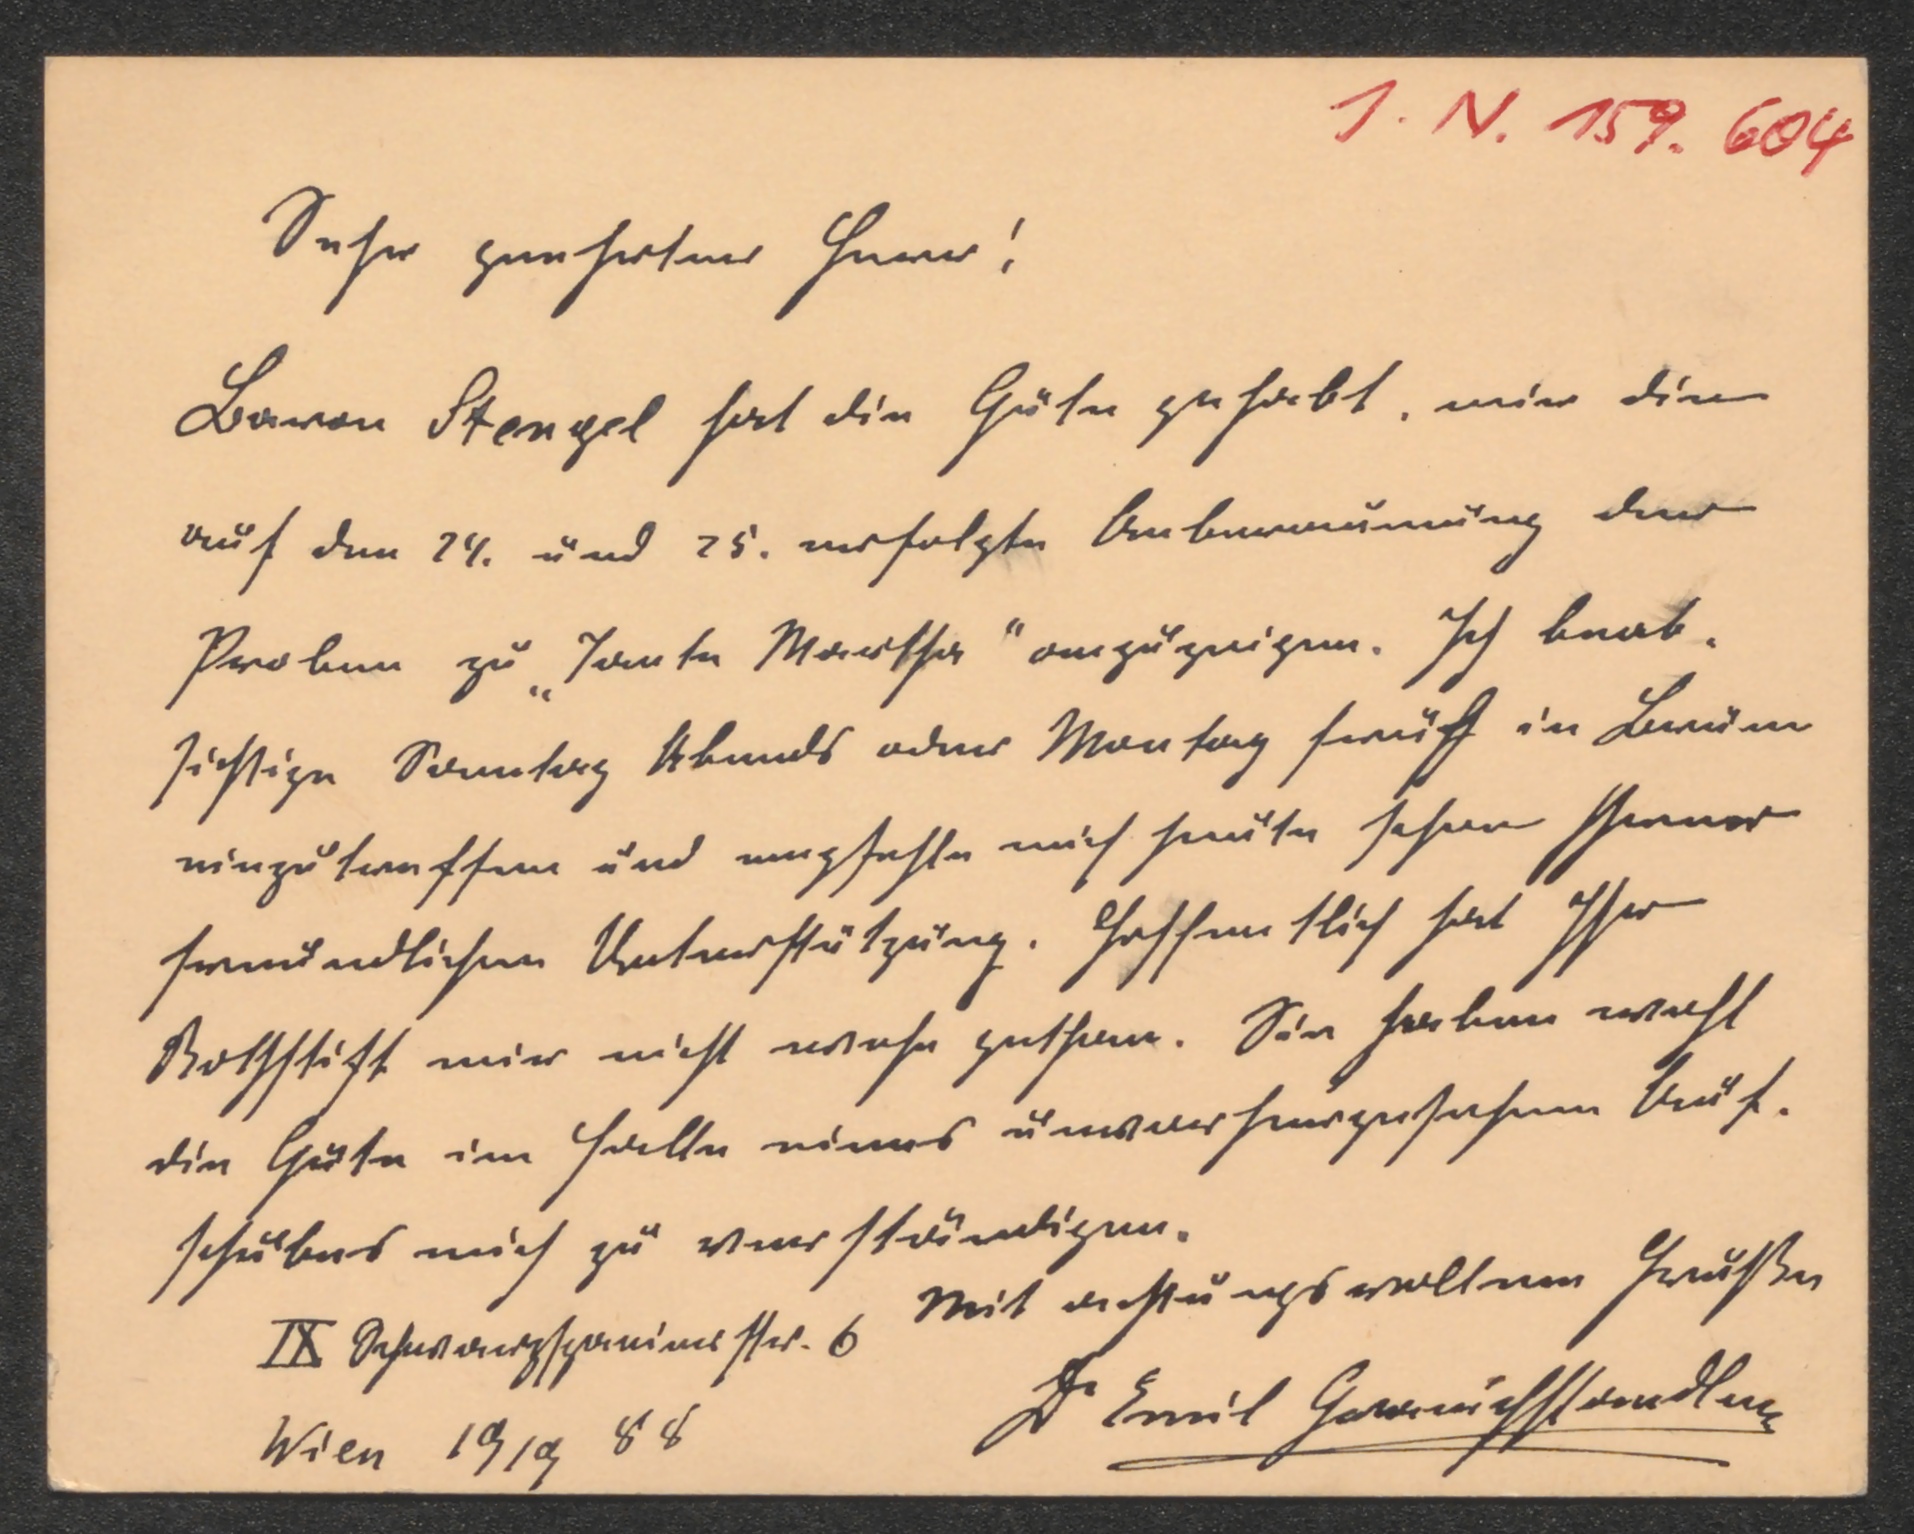 I. N. 159.604
Sehr geehrter Herr!
Baron Stengel hat die Güte gehabt, mir die
auf den 24. und 25. erfolgte Anberaumung der
Proben zu „Tante Martha“ anzuzeigen. Ich beab-
sichtige Sonntag Abends oder Montag früh in Brünn
einzutreffen und empfehle mich heute schon Ihrer
freundlichen Unterstützung. Hoffentlich hat Ihr
Rothstift mir nicht wehe gethan. Sie haben wohl
die Güte im Falle eines unvorhergesehenen Auf-
schubes mich zu verständigen.
Mit achtungsvollem Gruße
IX Schwarzspanierstr. 6
Dr Emil
Wien 19/9 88